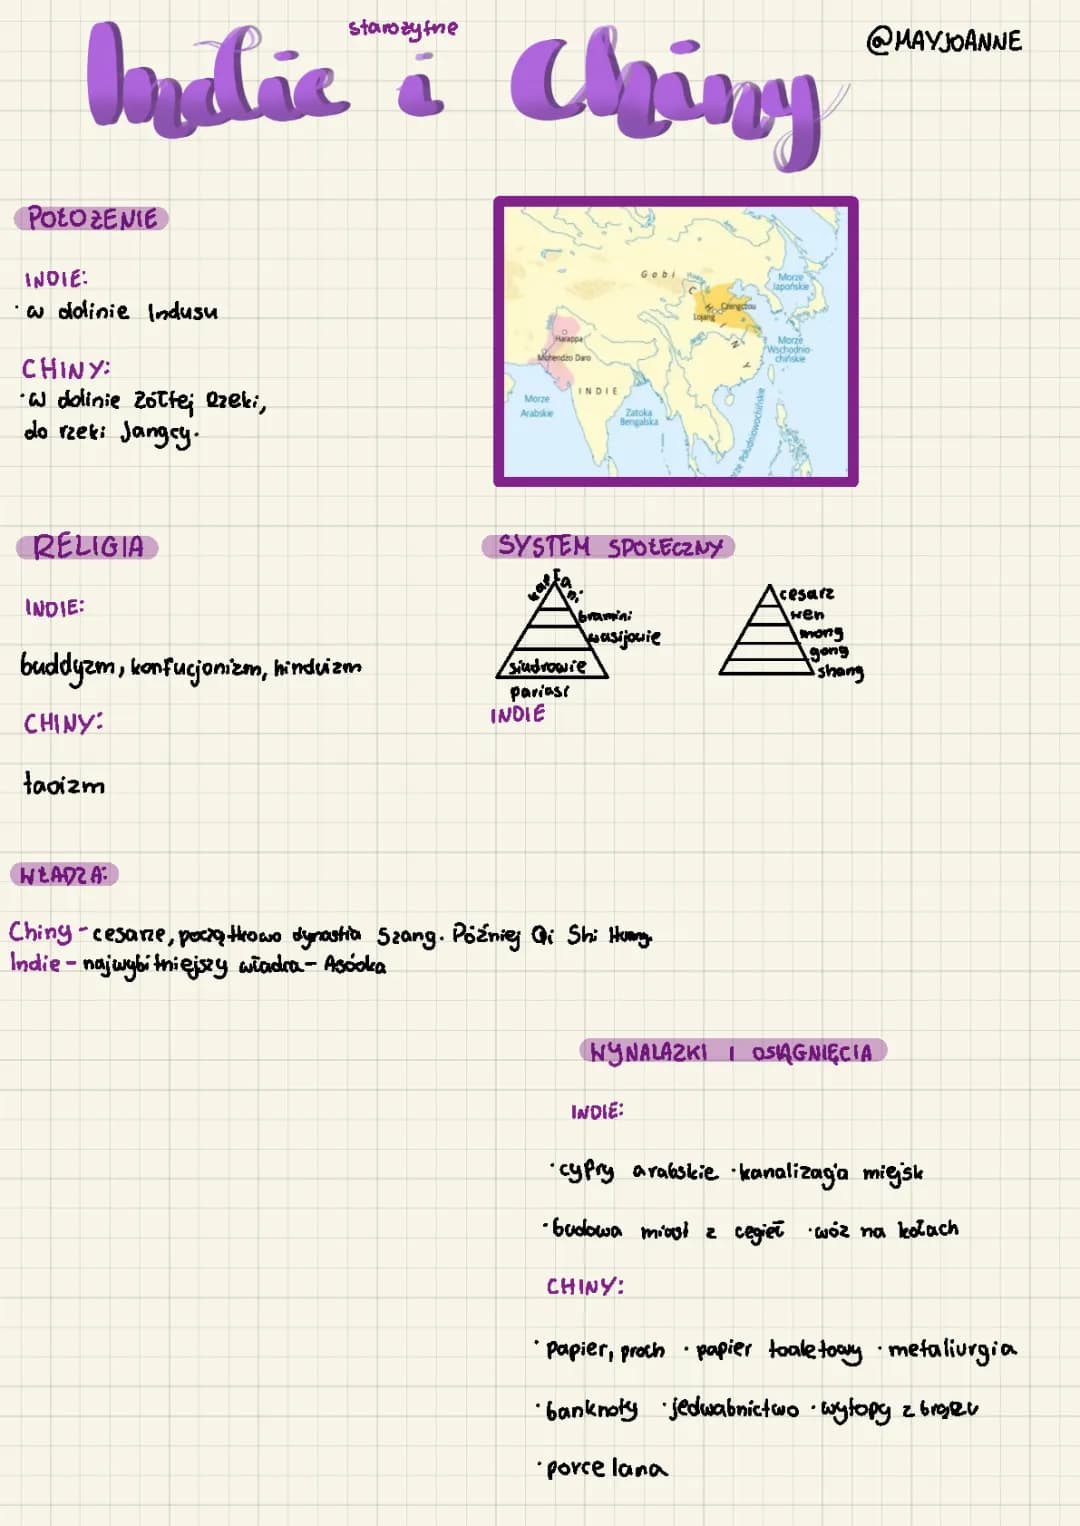 starożytne
Indie i Chiny
@MAYJOANNE
POŁOŻENIE
INDIE:
· w dolinie Indusu
CHINY:
· W dolinie Żółtej Rzeki,
do rzeki Jangcy.
Gobi
CHINY
Czengczou
Lojang
Morze
Japońskie
Harappa
Mohendżo Daro
Morze
Wschodnio-
chińskie
INDIE
Morze
Arabskie
Zatoka
Bengalska
Południowochińskie
RELIGIA
INDIE:
buddyzm, konfucjonizm, hinduizm
CHINY:
taoizm
SYSTEM SPOŁECZNY
kapłani
bramini
wasijowie
siudrowie
pariasi
INDIE
cesarz
wen
mong
gong
shang
WŁADZA:
Chiny - cesarze, początkowo dynastia Szang. Później Qi Shi Huang.
Indie - najwybitniejszy władca - Asóoka
WYNALAZKI I OSIĄGNIĘCIA
INDIE:
· cyfry arabskie · kanalizacja miejsk
· budowa miast z cegieł · wóz na kołach
CHINY:
· papier, proch · papier toaletowy · metaliurgia
· banknoty · jedwabnictwo · wytopy z brązu
· porcelana